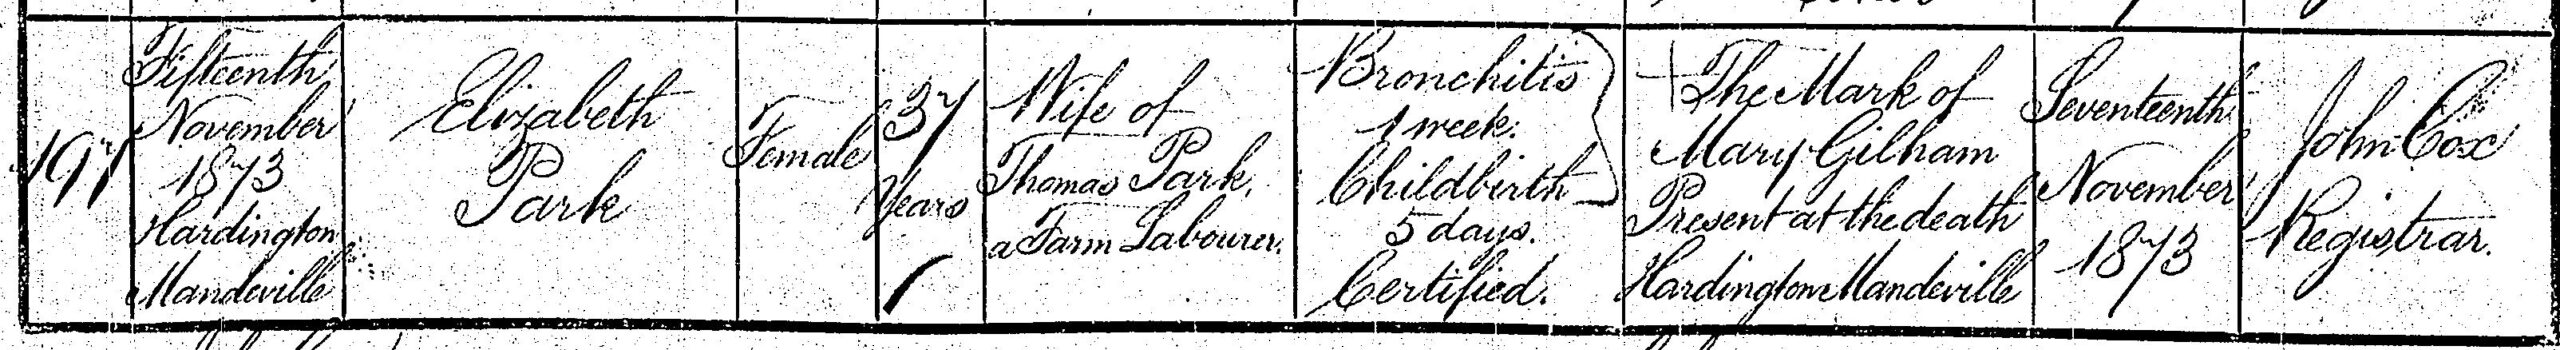 197
Fifteenth
November
1873
Hardington
Mandeville
Elizabeth
Park
Female
37
Years
Wife of
Thomas Park,
a Farm Labourer.
Bronchitis
1 week.
Childbirth
5 days.
Certified.
The Mark of
Mary Gilham
Present at the death
Hardington Mandeville
Seventeenth
November
1873
John Cox
Registrar.